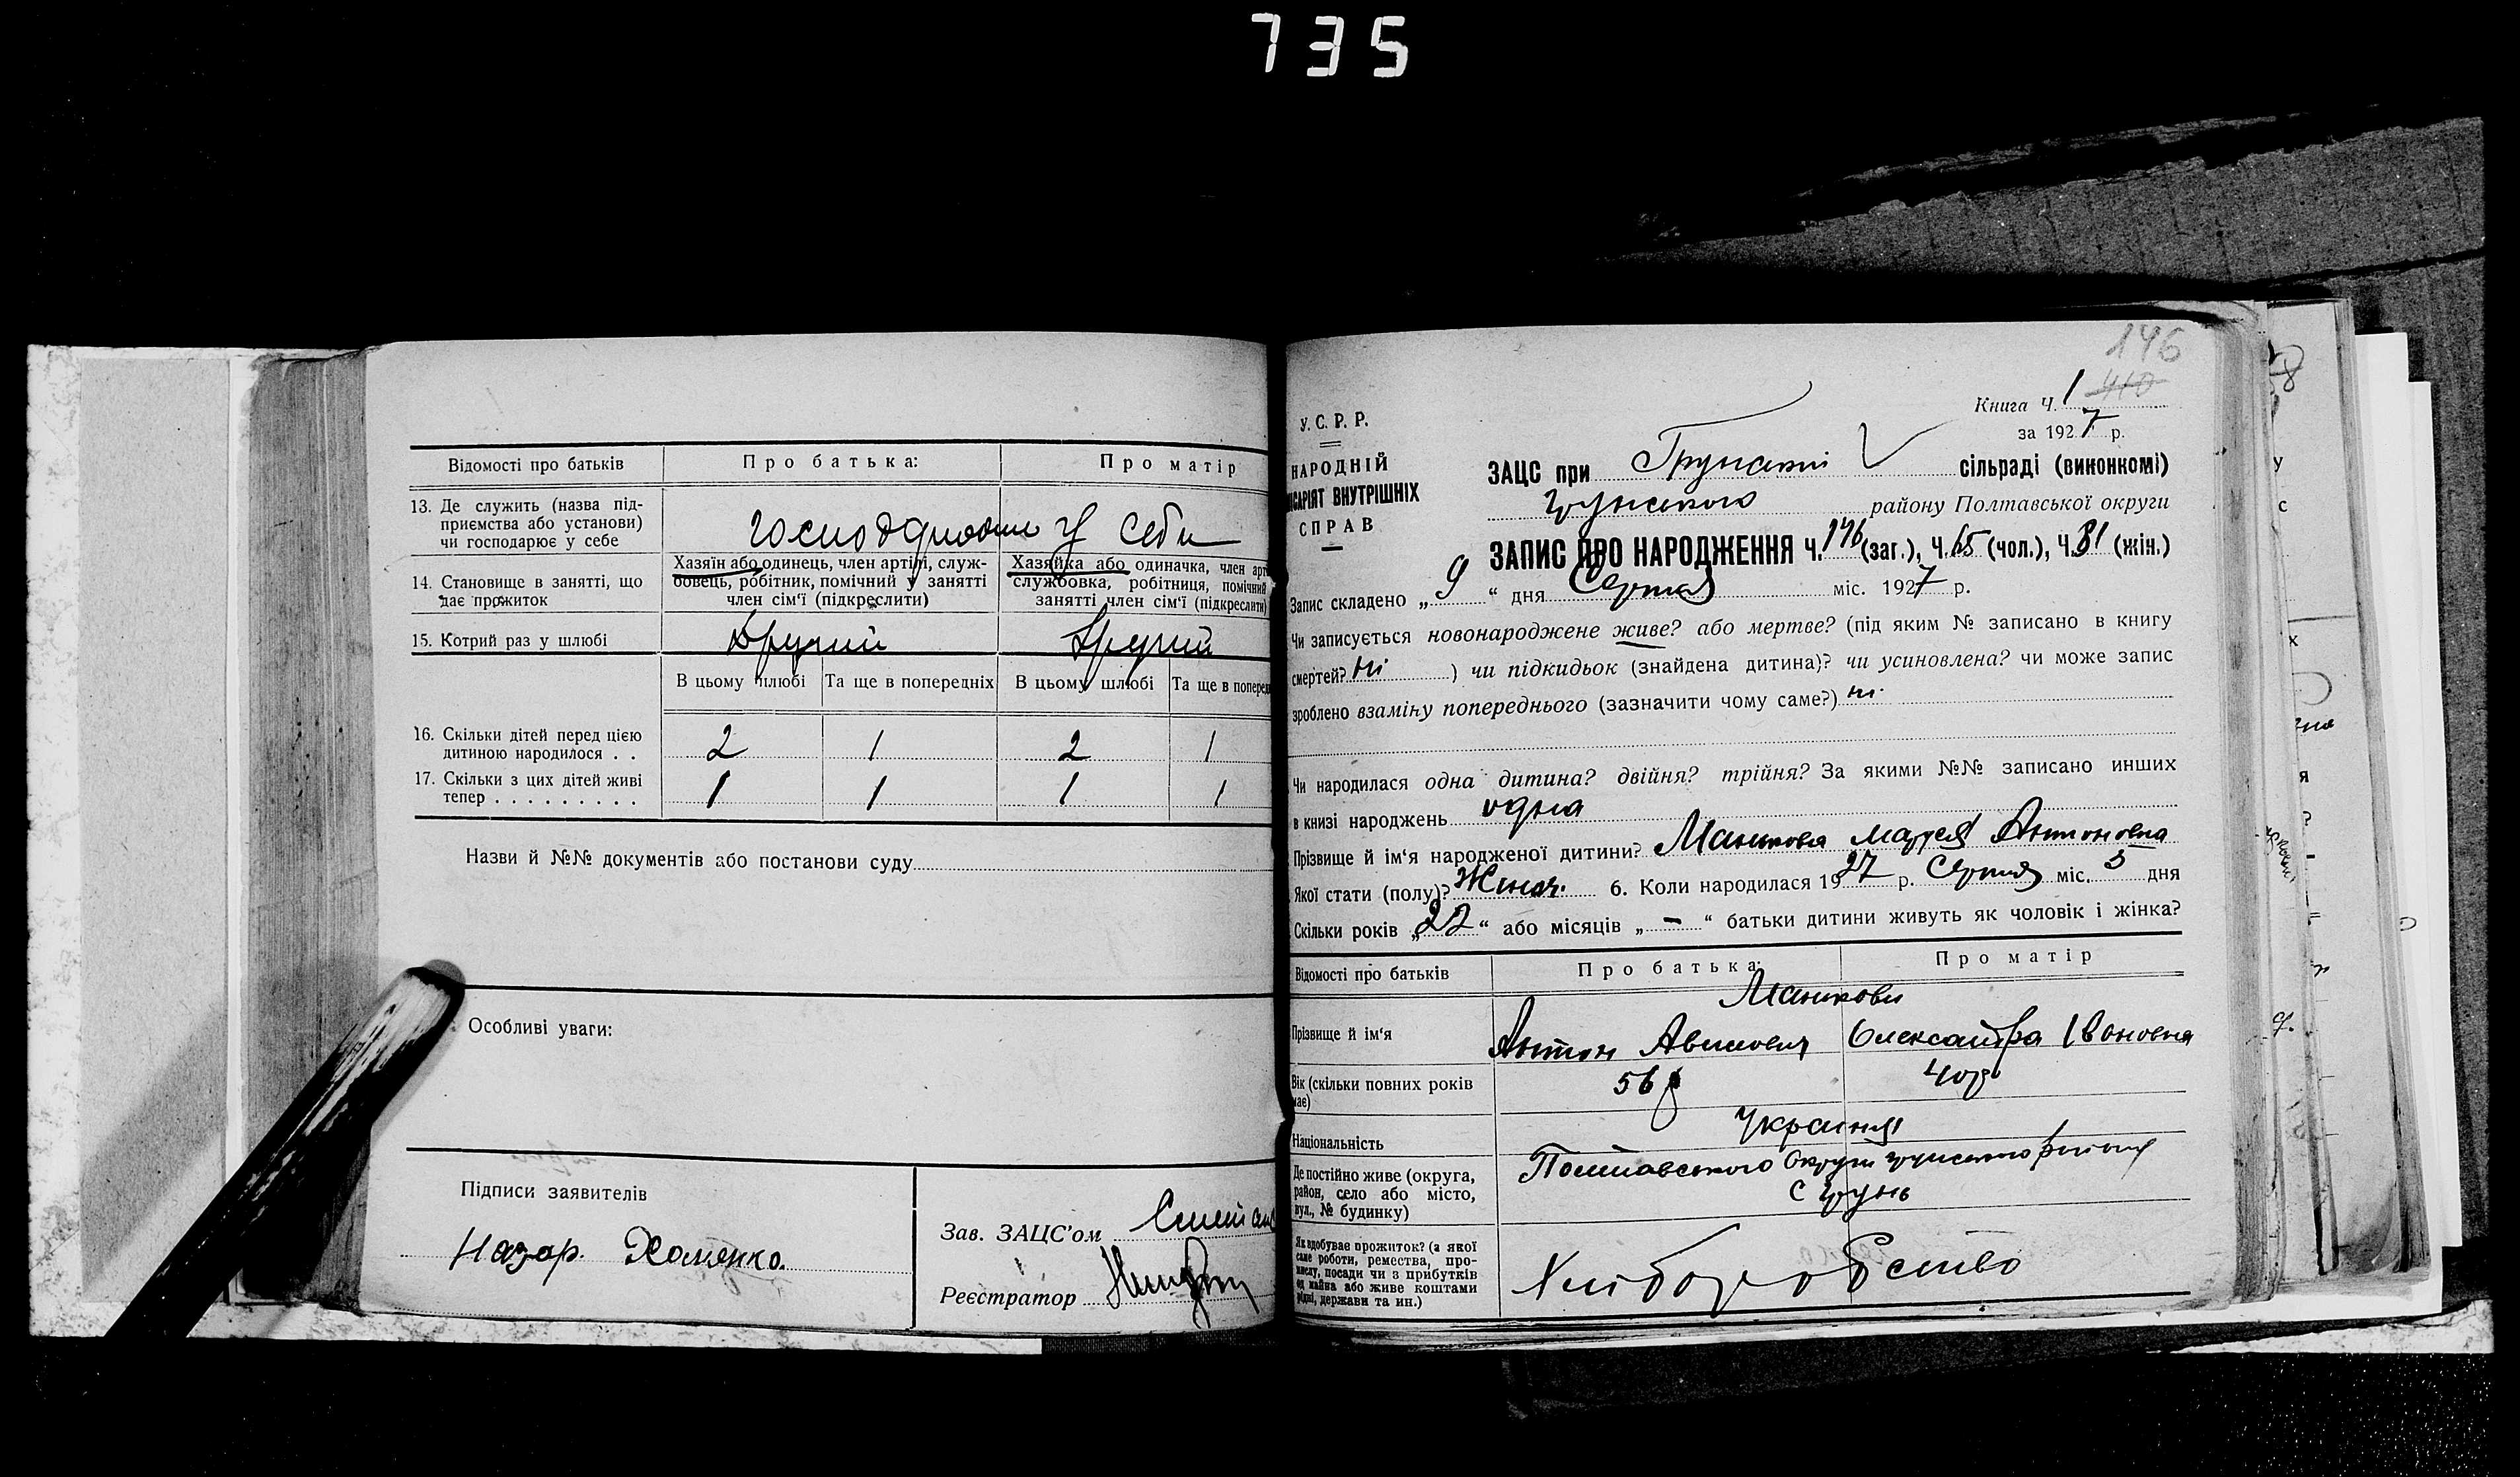 735
Відомості про батьків
Про батька:
Про матір
13. Де служить (назва під-
приємства або установи)
чи господарює у себе
у себе
14. Становище в занятті, що
дає прожиток
Хазяїн або одинець, член артілі, служ-
бовець, робітник, помічний у занятті
член сім'ї (підкреслити)
Хазяйка або одиначка, член арт
службовка, робітниця, помічний
занятті член сім'ї (підкреслити)
15. Котрий раз у шлюбі
Другий
Другий
В цьому шлюбі
Та ще в попередніх
В цьому шлюбі
Та ще в поперед
16. Скільки дітей перед цією
дитиною народилося . .
2
1
2
1
17. Скільки з цих дітей живі
тепер . . . . . . . . .
1
1
1
1
Назви й №№ документів або постанови суду
Особливі уваги:
Підписи заявителів
Назар. Хоменко.
Зав. ЗАЦС'ом
Реєстратор
146
410
Книга Ч. 1
за 1927 р.
У. С. Р. Р.
НАРОДНІЙ
ІСАРІЯТ ВНУТРІШНІХ
СПРАВ
ЗАЦС при Грунський сільраді (виконкомі)
грунського району Полтавської округи
ЗАПИС ПРО НАРОДЖЕННЯ Ч. 146 (заг.), Ч. 65 (чол.), Ч. 81 (жін.)
Запис складено „ 9 “ дня Серпня міс. 1927 р.
Чи записується новонароджене живе? або мертве? (під яким № записано в книгу
смертей? ні ) чи підкидьок (знайдена дитина)? чи усиновлена? чи може запис
зроблено взаміну попереднього (зазначити чому саме?) ні
Чи народилася одна дитина? двійня? трійня? За якими №№ записано инших
в книзі народжень одна
Прізвище й ім'я народженої дитини? Манькова Антоновна
Якої стати (полу)? Жіноч. 6. Коли народилася 1927 р. Серпня міс. 5 дня
Скільки років „ 22 “ або місяців „ - “ батьки дитини живуть як чоловік і жінка?
Відомості про батьків
Про батька:
Про матір
Манькови
Прізвище й ім'я
Антон
Олександра Івоновна
Вік (скільки повних років
має)
56 р
40 р
Національність
Україня
Де постійно живе (округа,
район, село або місто,
вул., № будинку)
Полтавського Округи грунського району
с грунь
Як здобуває прожиток? (з якої
саме роботи, ремества, про-
мислу, посади чи з прибутків
од майна або живе коштами
рідні, держави та ин.)
Хліборобство